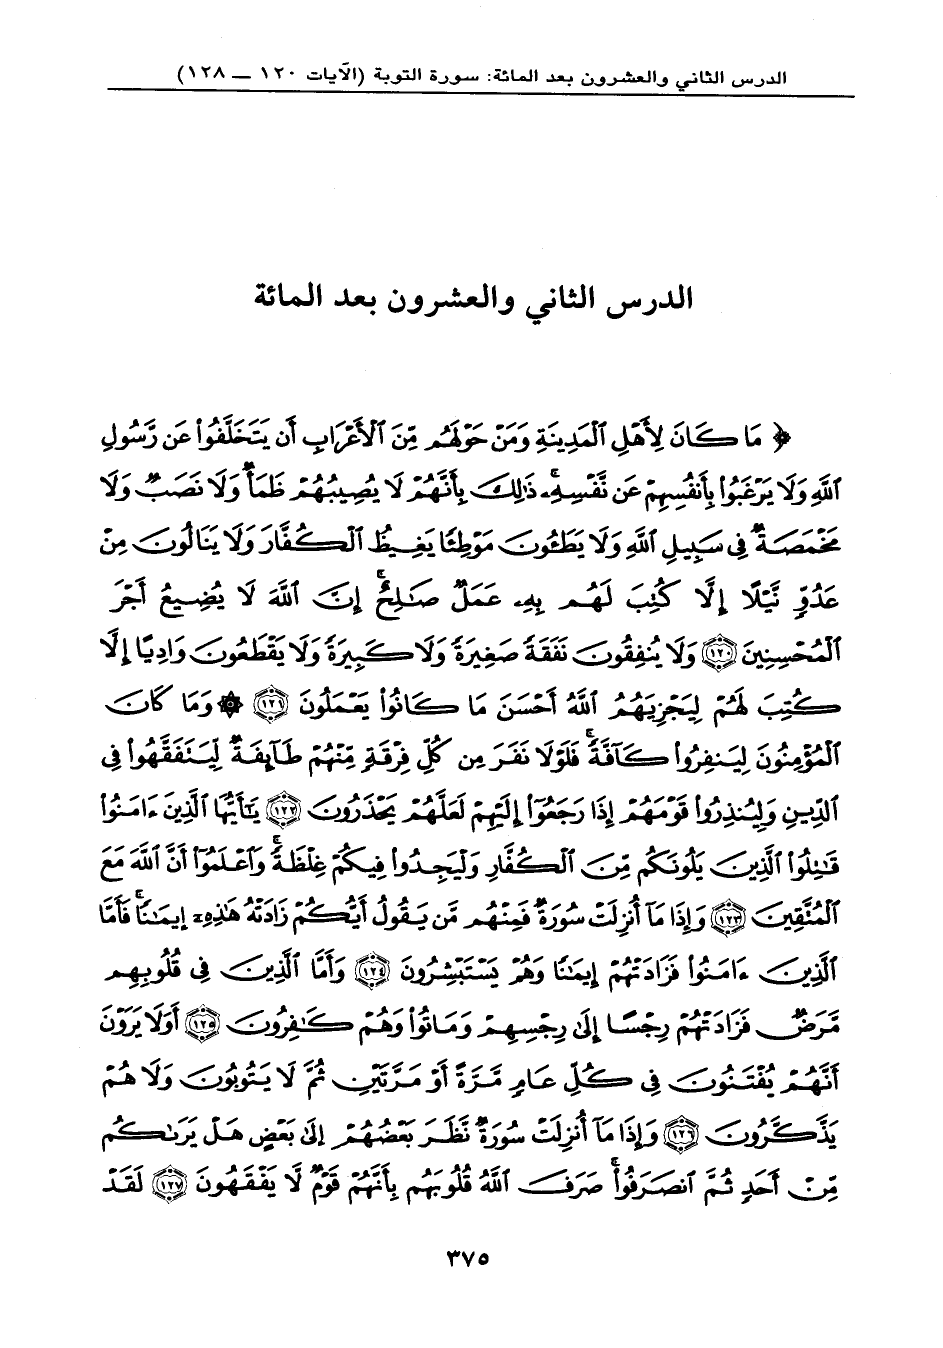 الدرس الثاني والعشرون بعد المائة: سورة التوبة (الآيات ١٢٠ — ١٢٨)
الدرس الثاني والعشرون بعد المائة
﴿ مَا كَانَ لِأَهْلِ ٱلْمَدِينَةِ وَمَنْ حَوْلَهُم مِّنَ ٱلْأَعْرَابِ أَن يَتَخَلَّفُوا۟ عَن رَّسُولِ
ٱللَّهِ وَلَا يَرْغَبُوا۟ بِأَنفُسِهِمْ عَن نَّفْسِهِۦ ۚ ذَٰلِكَ بِأَنَّهُمْ لَا يُصِيبُهُمْ ظَمَأٌ وَلَا نَصَبٌ وَلَا
مَخْمَصَةٌ فِى سَبِيلِ ٱللَّهِ وَلَا يَطَـُٔونَ مَوْطِئًا يَغِيظُ ٱلْكُفَّارَ وَلَا يَنَالُونَ مِنْ
عَدُوٍّ نَّيْلًا إِلَّا كُتِبَ لَهُم بِهِۦ عَمَلٌ صَـٰلِحٌ ۚ إِنَّ ٱللَّهَ لَا يُضِيعُ أَجْرَ
ٱلْمُحْسِنِينَ ١٢٠ وَلَا يُنفِقُونَ نَفَقَةً صَغِيرَةً وَلَا كَبِيرَةً وَلَا يَقْطَعُونَ وَادِيًا إِلَّا
كُتِبَ لَهُمْ لِيَجْزِيَهُمُ ٱللَّهُ أَحْسَنَ مَا كَانُوا۟ يَعْمَلُونَ ١٢١ ۞ وَمَا كَانَ
ٱلْمُؤْمِنُونَ لِيَنفِرُوا۟ كَآفَّةً ۚ فَلَوْلَا نَفَرَ مِن كُلِّ فِرْقَةٍ مِّنْهُمْ طَآئِفَةٌ لِّيَتَفَقَّهُوا۟ فِى
ٱلدِّينِ وَلِيُنذِرُوا۟ قَوْمَهُمْ إِذَا رَجَعُوٓا۟ إِلَيْهِمْ لَعَلَّهُمْ يَحْذَرُونَ ١٢٢ يَـٰٓأَيُّهَا ٱلَّذِينَ ءَامَنُوا۟
قَـٰتِلُوا۟ ٱلَّذِينَ يَلُونَكُم مِّنَ ٱلْكُفَّارِ وَلْيَجِدُوا۟ فِيكُمْ غِلْظَةً ۚ وَٱعْلَمُوٓا۟ أَنَّ ٱللَّهَ مَعَ
ٱلْمُتَّقِينَ ١٢٣ وَإِذَا مَآ أُنزِلَتْ سُورَةٌ فَمِنْهُم مَّن يَقُولُ أَيُّكُمْ زَادَتْهُ هَـٰذِهِۦٓ إِيمَـٰنًا ۚ فَأَمَّا
ٱلَّذِينَ ءَامَنُوا۟ فَزَادَتْهُمْ إِيمَـٰنًا وَهُمْ يَسْتَبْشِرُونَ ١٢٤ وَأَمَّا ٱلَّذِينَ فِى قُلُوبِهِم
مَّرَضٌ فَزَادَتْهُمْ رِجْسًا إِلَىٰ رِجْسِهِمْ وَمَاتُوا۟ وَهُمْ كَـٰفِرُونَ ١٢٥ أَوَلَا يَرَوْنَ
أَنَّهُمْ يُفْتَنُونَ فِى كُلِّ عَامٍ مَّرَّةً أَوْ مَرَّتَيْنِ ثُمَّ لَا يَتُوبُونَ وَلَا هُمْ
يَذَّكَّرُونَ ١٢٦ وَإِذَا مَآ أُنزِلَتْ سُورَةٌ نَّظَرَ بَعْضُهُمْ إِلَىٰ بَعْضٍ هَلْ يَرَىٰكُم
مِّنْ أَحَدٍ ثُمَّ ٱنصَرَفُوا۟ ۚ صَرَفَ ٱللَّهُ قُلُوبَهُم بِأَنَّهُمْ قَوْمٌ لَّا يَفْقَهُونَ ١٢٧ لَقَدْ
٣٧٥